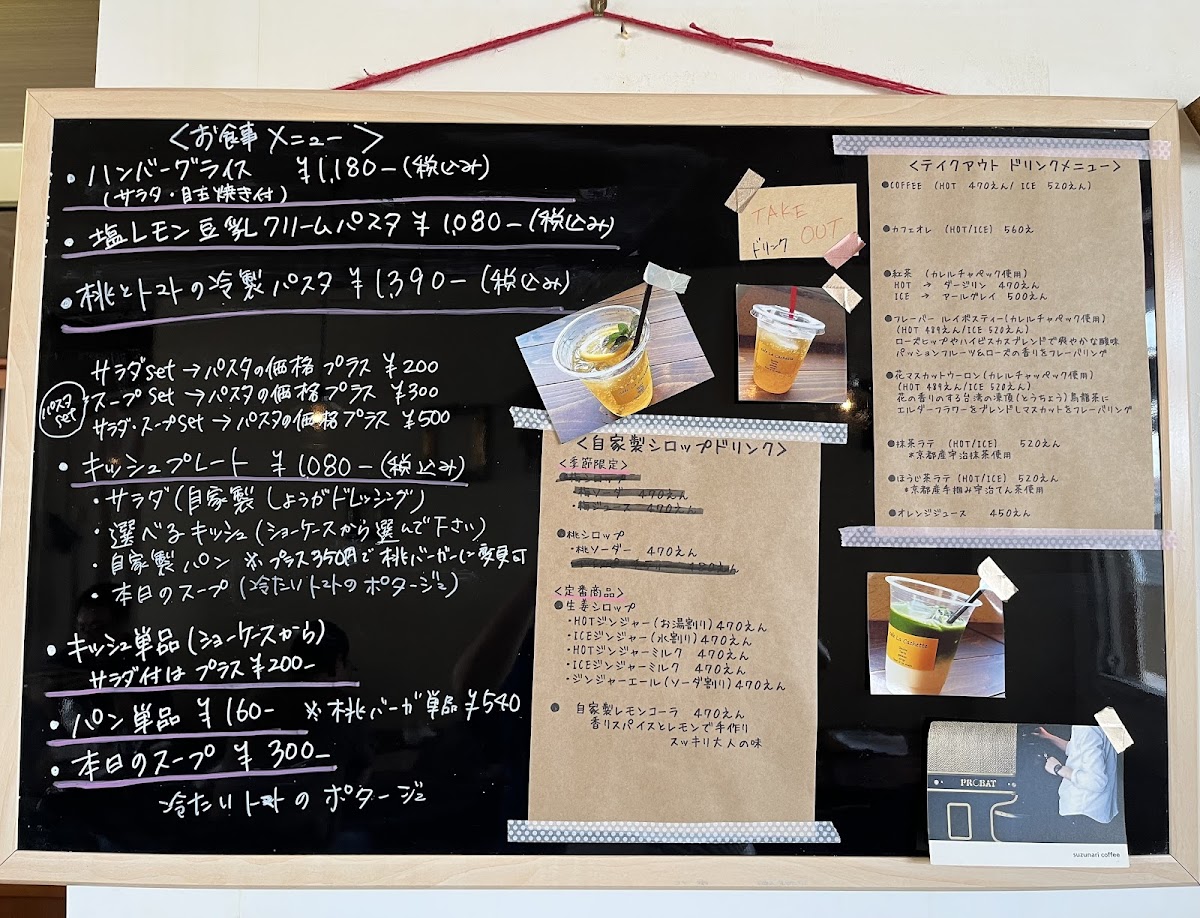 <お食事メニュー>
・ハンバーグライス ¥1,180-(税込み)
(サラダ・目玉焼き付)
・塩レモン豆乳クリームパスタ ¥1,080-(税込み)
・桃とトマトの冷製パスタ ¥1,390-(税込み)
パスタset
サラダset→パスタの価格プラス ¥200
スープset→パスタの価格プラス ¥300
サラダ・スープset→パスタの価格プラス ¥500
・キッシュプレート ¥1,080-(税込み)
・サラダ(自家製しょうがドレッシング)
・選べるキッシュ(ショーケースから選んで下さい)
・自家製パン ※プラス350円で桃バーガーに変更可
・本日のスープ(冷たいトマトのポタージュ)
・キッシュ単品(ショーケースから)
サラダ付はプラス¥200-
・パン単品 ¥160- ※桃バーガ単品¥540
・本日のスープ ¥300-
冷たいトマトのポタージュ
TAKE OUT
ドリンク
<自家製シロップドリンク>
<季節限定>
●梅シロップ
・梅ソーダ 470えん
・梅ジュース 470えん
●桃シロップ
・桃ソーダー 470えん
<定番商品>
●生姜シロップ
・HOTジンジャー(お湯割り)470えん
・ICEジンジャー(水割り)470えん
・HOTジンジャーミルク 470えん
・ICEジンジャーミルク 470えん
・ジンジャーエール(ソーダ割り)470えん
● 自家製レモンコーラ 470えん
香りスパイスとレモンで手作り
スッキリ大人の味
<テイクアウト ドリンクメニュー>
●COFFEE (HOT 470えん/ ICE 520えん)
●カフェオレ (HOT/ICE) 560え
●紅茶 (カレルチャペック使用)
HOT → ダージリン 470えん
ICE → アールグレイ 500えん
●フレーバー ルイボスティー(カレルチャペック使用)
(HOT 489えん/ICE 520えん)
ローズヒップやハイビスカスブレンドで爽やかな酸味
パッションフルーツ&ローズの香りをフレーバリング
●花マスカットウーロン(カレルチャッペック使用)
(HOT 489えん/ICE 520えん)
花の香りのする台湾の凍頂(とうちょう)烏龍茶に
エルダーフラワーをブレンドしマスカットをフレーバリング
●抹茶ラテ (HOT/ICE) 520えん
*京都産宇治抹茶使用
●ほうじ茶ラテ(HOT/ICE) 520えん
*京都産手摘み宇治てん茶使用
●オレンジジュース 450えん
PROBAT
suzunari coffee